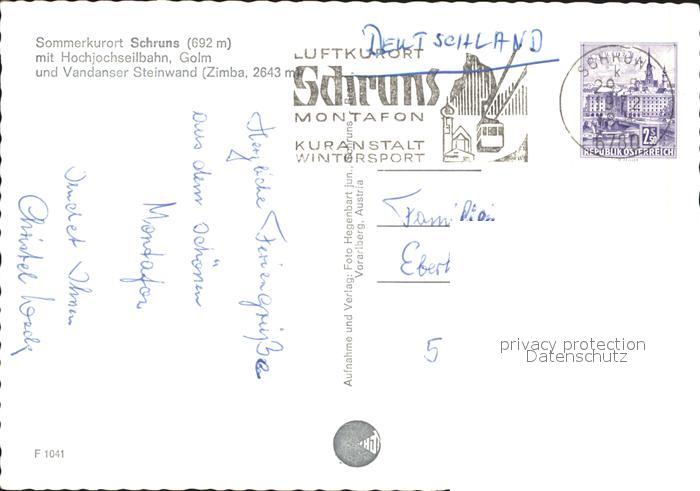 Sommerkurort Schruns (692 m)
mit Hochjochseilbahn, Golm
und Vandanser Steinwand (Zimba, 2643 m)
DEUTSCHLAND
LUFTKURORT
Schruns
MONTAFON
KURANSTALT
WINTERSPORT
SCHRUNS
6780
2.50
REPUBLIK ÖSTERREICH
Herzliche Feriengrüße
aus dem schönen
Montafon
sendet Ihnen
Christel
Aufnahme und Verlag: Foto Hegenbart jun., Schruns
Vorarlberg, Austria
Familie
Ebert
5
privacy protection
Datenschutz
F 1041